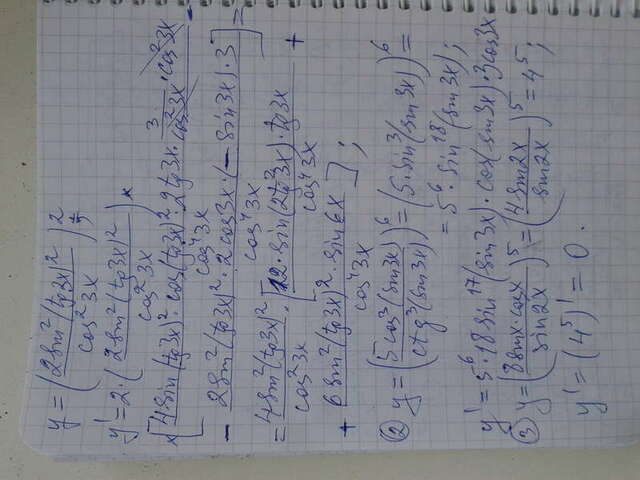 y = (2sin²(tg3x)²/cos²3x)²
y' = 2·(2sin²(tg3x)²/cos²3x)^1 ×
×[4sin(tg3x)²·cos(tg3x)²·2tg3x·3/cos²3x·cos²3x/cos⁴3x -
- 2sin²(tg3x)²·2cos3x·(-sin3x)·3/cos⁴3x] =
= 4sin²(tg3x)²/cos²3x·[12·sin(2tg²3x)·tg3x/cos⁴3x +
+ 6sin²(tg3x)²·sin6x/cos⁴3x];
② y = (5cos³(sin3x)/ctg³(sin3x))⁶ = (5·sin³(sin3x))⁶ =
= 5⁶·sin¹⁸(sin3x);
y' = 5⁶·18sin¹⁷(sin3x)·cos(sin3x)·3cos3x
③ y = (8sinx·cosx/sin2x)⁵ = (4sin2x/sin2x)⁵ = 4⁵;
y' = (4⁵)' = 0.